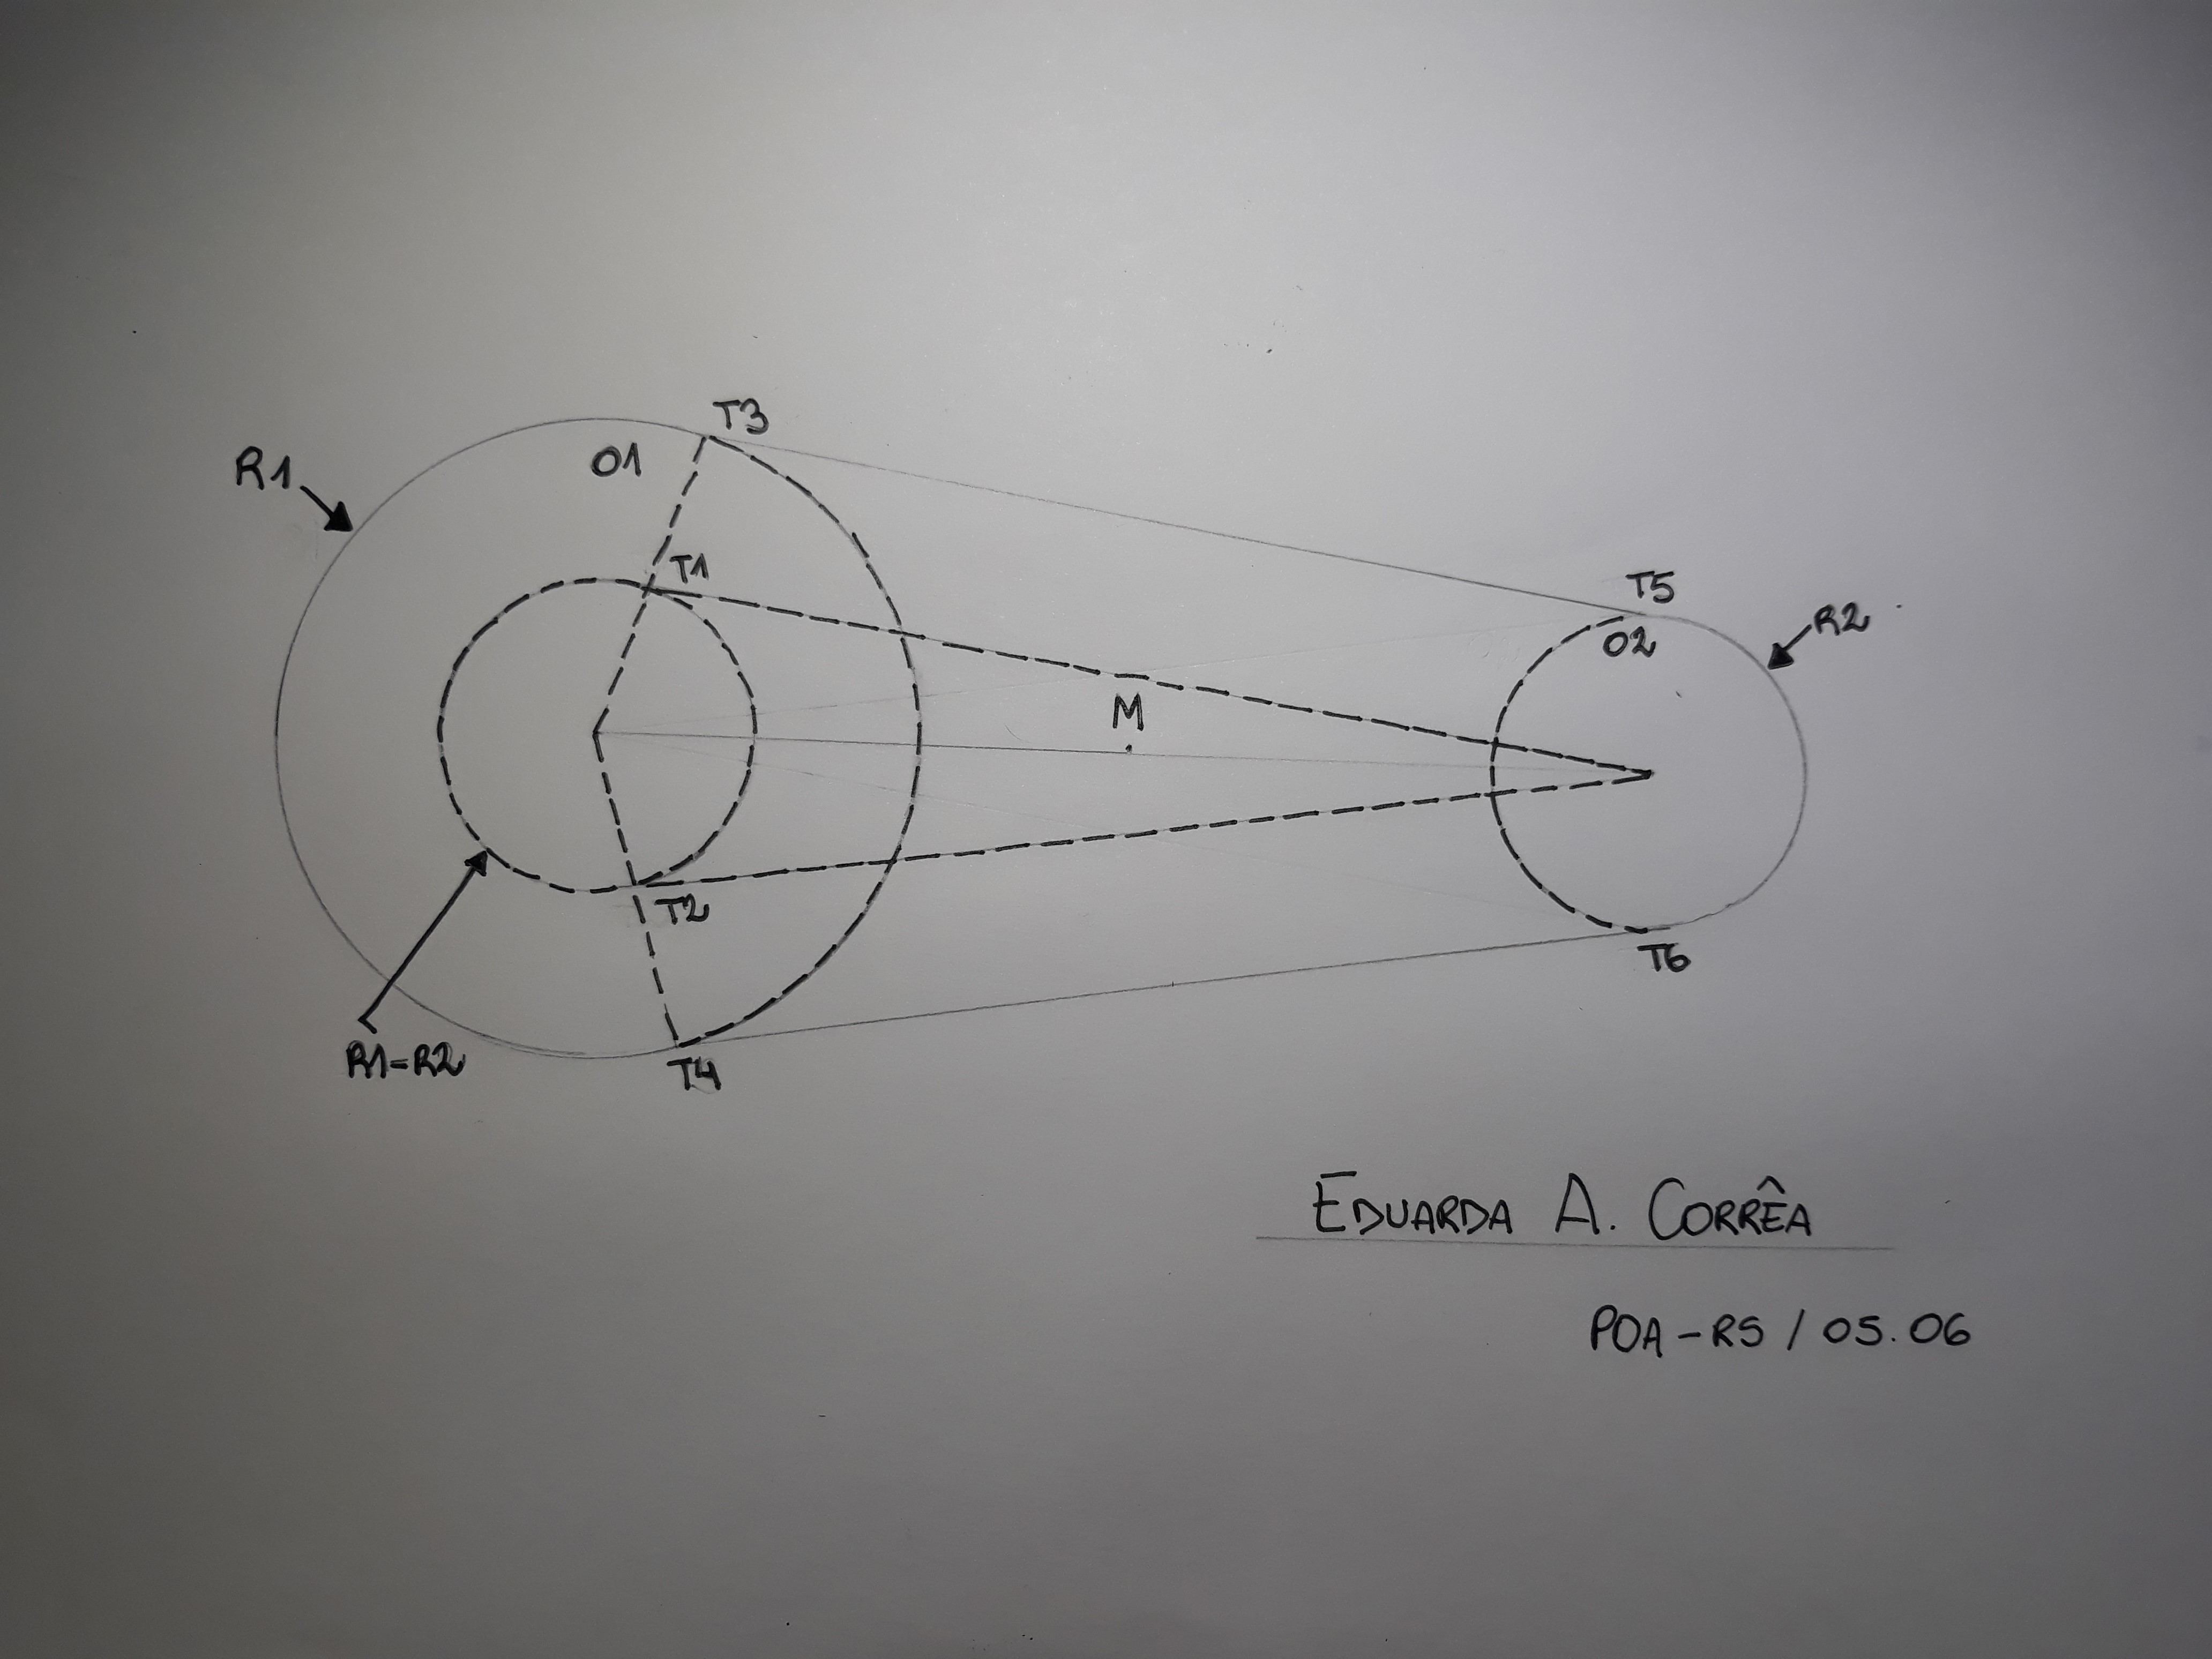 T3
O1
R1
T1
T5
R2
O2
M
T2
T6
R1-R2
T4
EDUARDA A. CORRÊA
POA-RS / 05.06